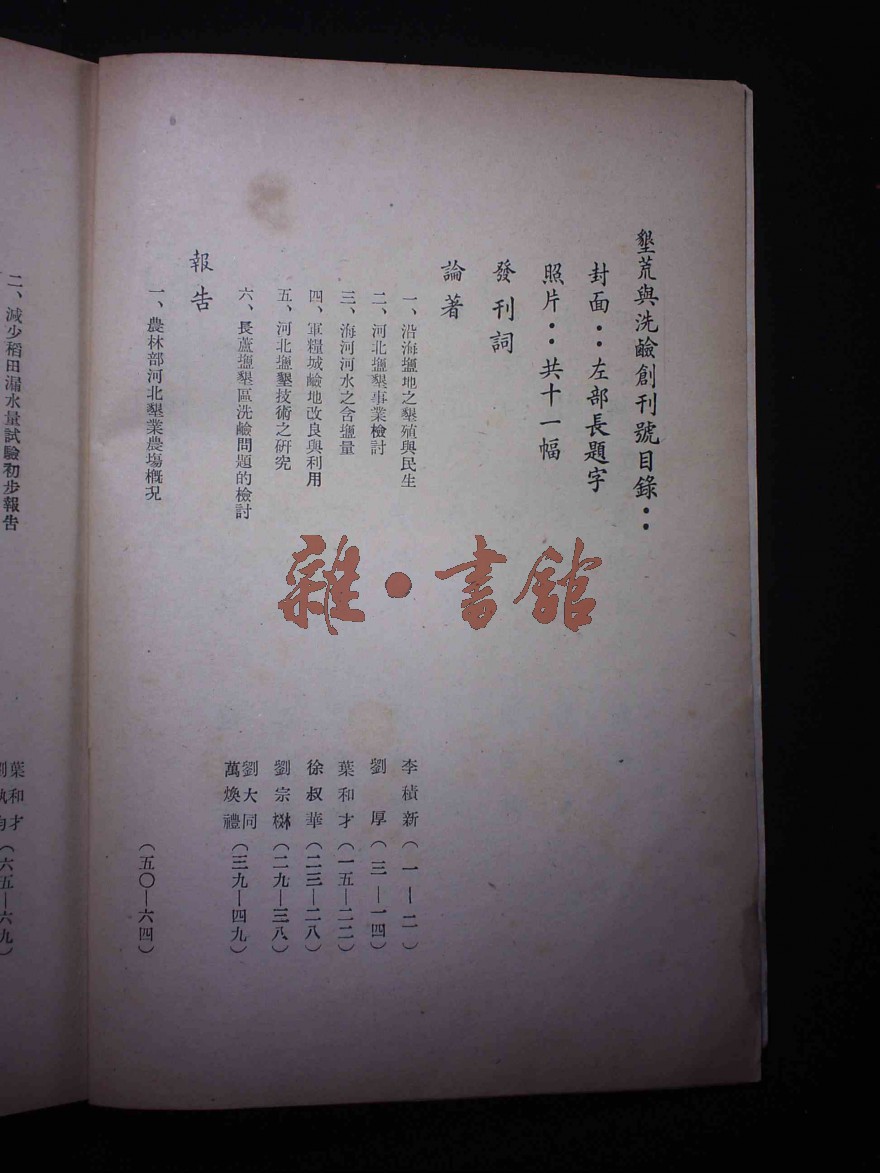 墾荒與洗鹼創刊號目錄：
封面：左部長題字
照片：共十一幅
發刊詞
論著
一、沿海鹽地之墾殖與民生 李積新（一—二）
二、河北鹽墾事業檢討 劉厚（三—一四）
三、海河河水之含鹽量 葉和才（一五—二二）
四、軍糧城鹼地改良與利用 徐叔華（二三—二八）
五、河北鹽墾技術之研究 劉宗楙（二九—三八）
六、長蘆鹽墾區洗鹼問題的檢討 劉大同 萬煥禮（三九—四九）
報告
一、農林部河北墾業農場概况 （五〇—六四）
二、減少稻田漏水量試驗初步報告 葉和才（六五—六九）
雜·書館